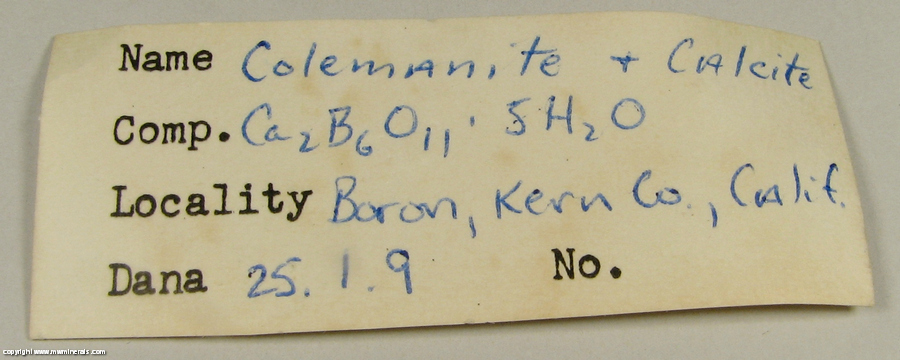 Name Colemanite + Calcite
Comp. Ca₂B₆O₁₁ · 5H₂O
Locality Boron, Kern Co., Calif.
Dana 25.1.9 No.
copyright www.mwminerals.com